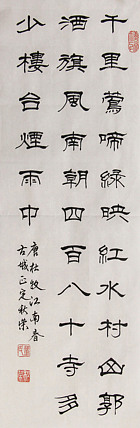 千里鶯啼綠映紅水村山郭
酒旗風南朝四百八十寺多
少樓台煙雨中
唐杜牧江南春
古城正定秋